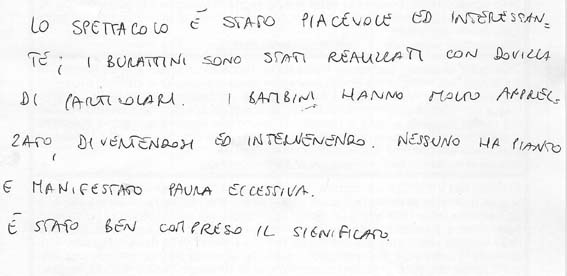 LO SPETTACOLO È STATO PIACEVOLE ED INTERESSAN=
TE; I BURATTINI SONO STATI REALIZZATI CON DOVIZIA
DI PARTICOLARI. I BAMBINI HANNO MOLTO APPREZ=
ZATO, DIVERTENDOSI ED INTERVENENDO. NESSUNO HA PIANTO
E MANIFESTATO PAURA ECCESSIVA.
È STATO BEN COMPRESO IL SIGNIFICATO.